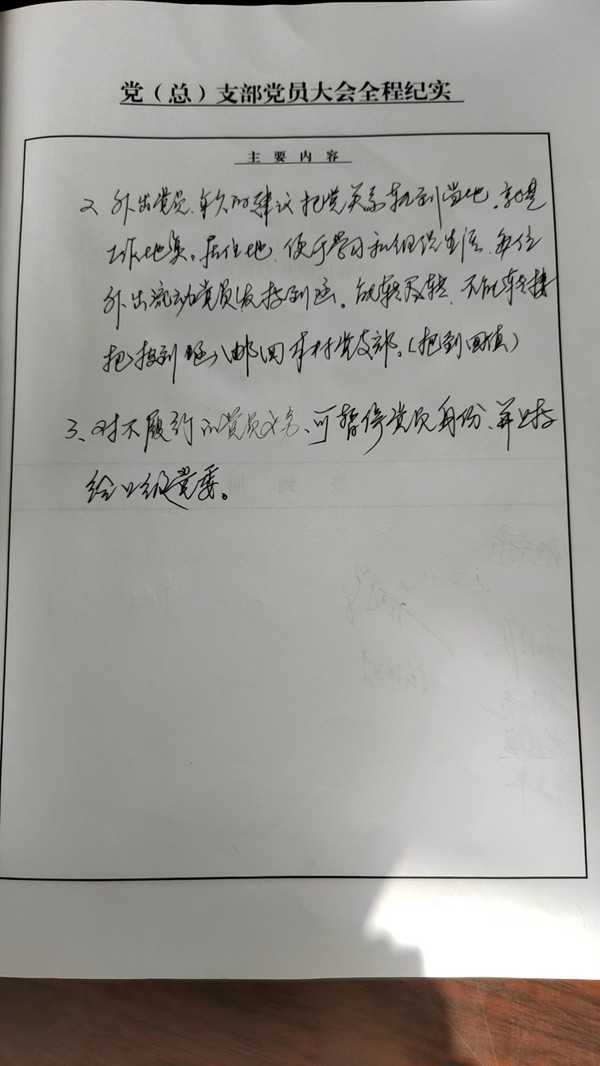 党（总）支部党员大会全程纪实
主要内容
2 外出党员,年久的建议把党关系转到当地,就是
工作地点。居住地,便于学习和组织生活,每位
外出流动党员发报到函。能转尽转,不能转接
把报到函邮回本村党支部。(把到回填)
3、对不履行的党员义务、可暂停党员身份、并上报
给上级党委。